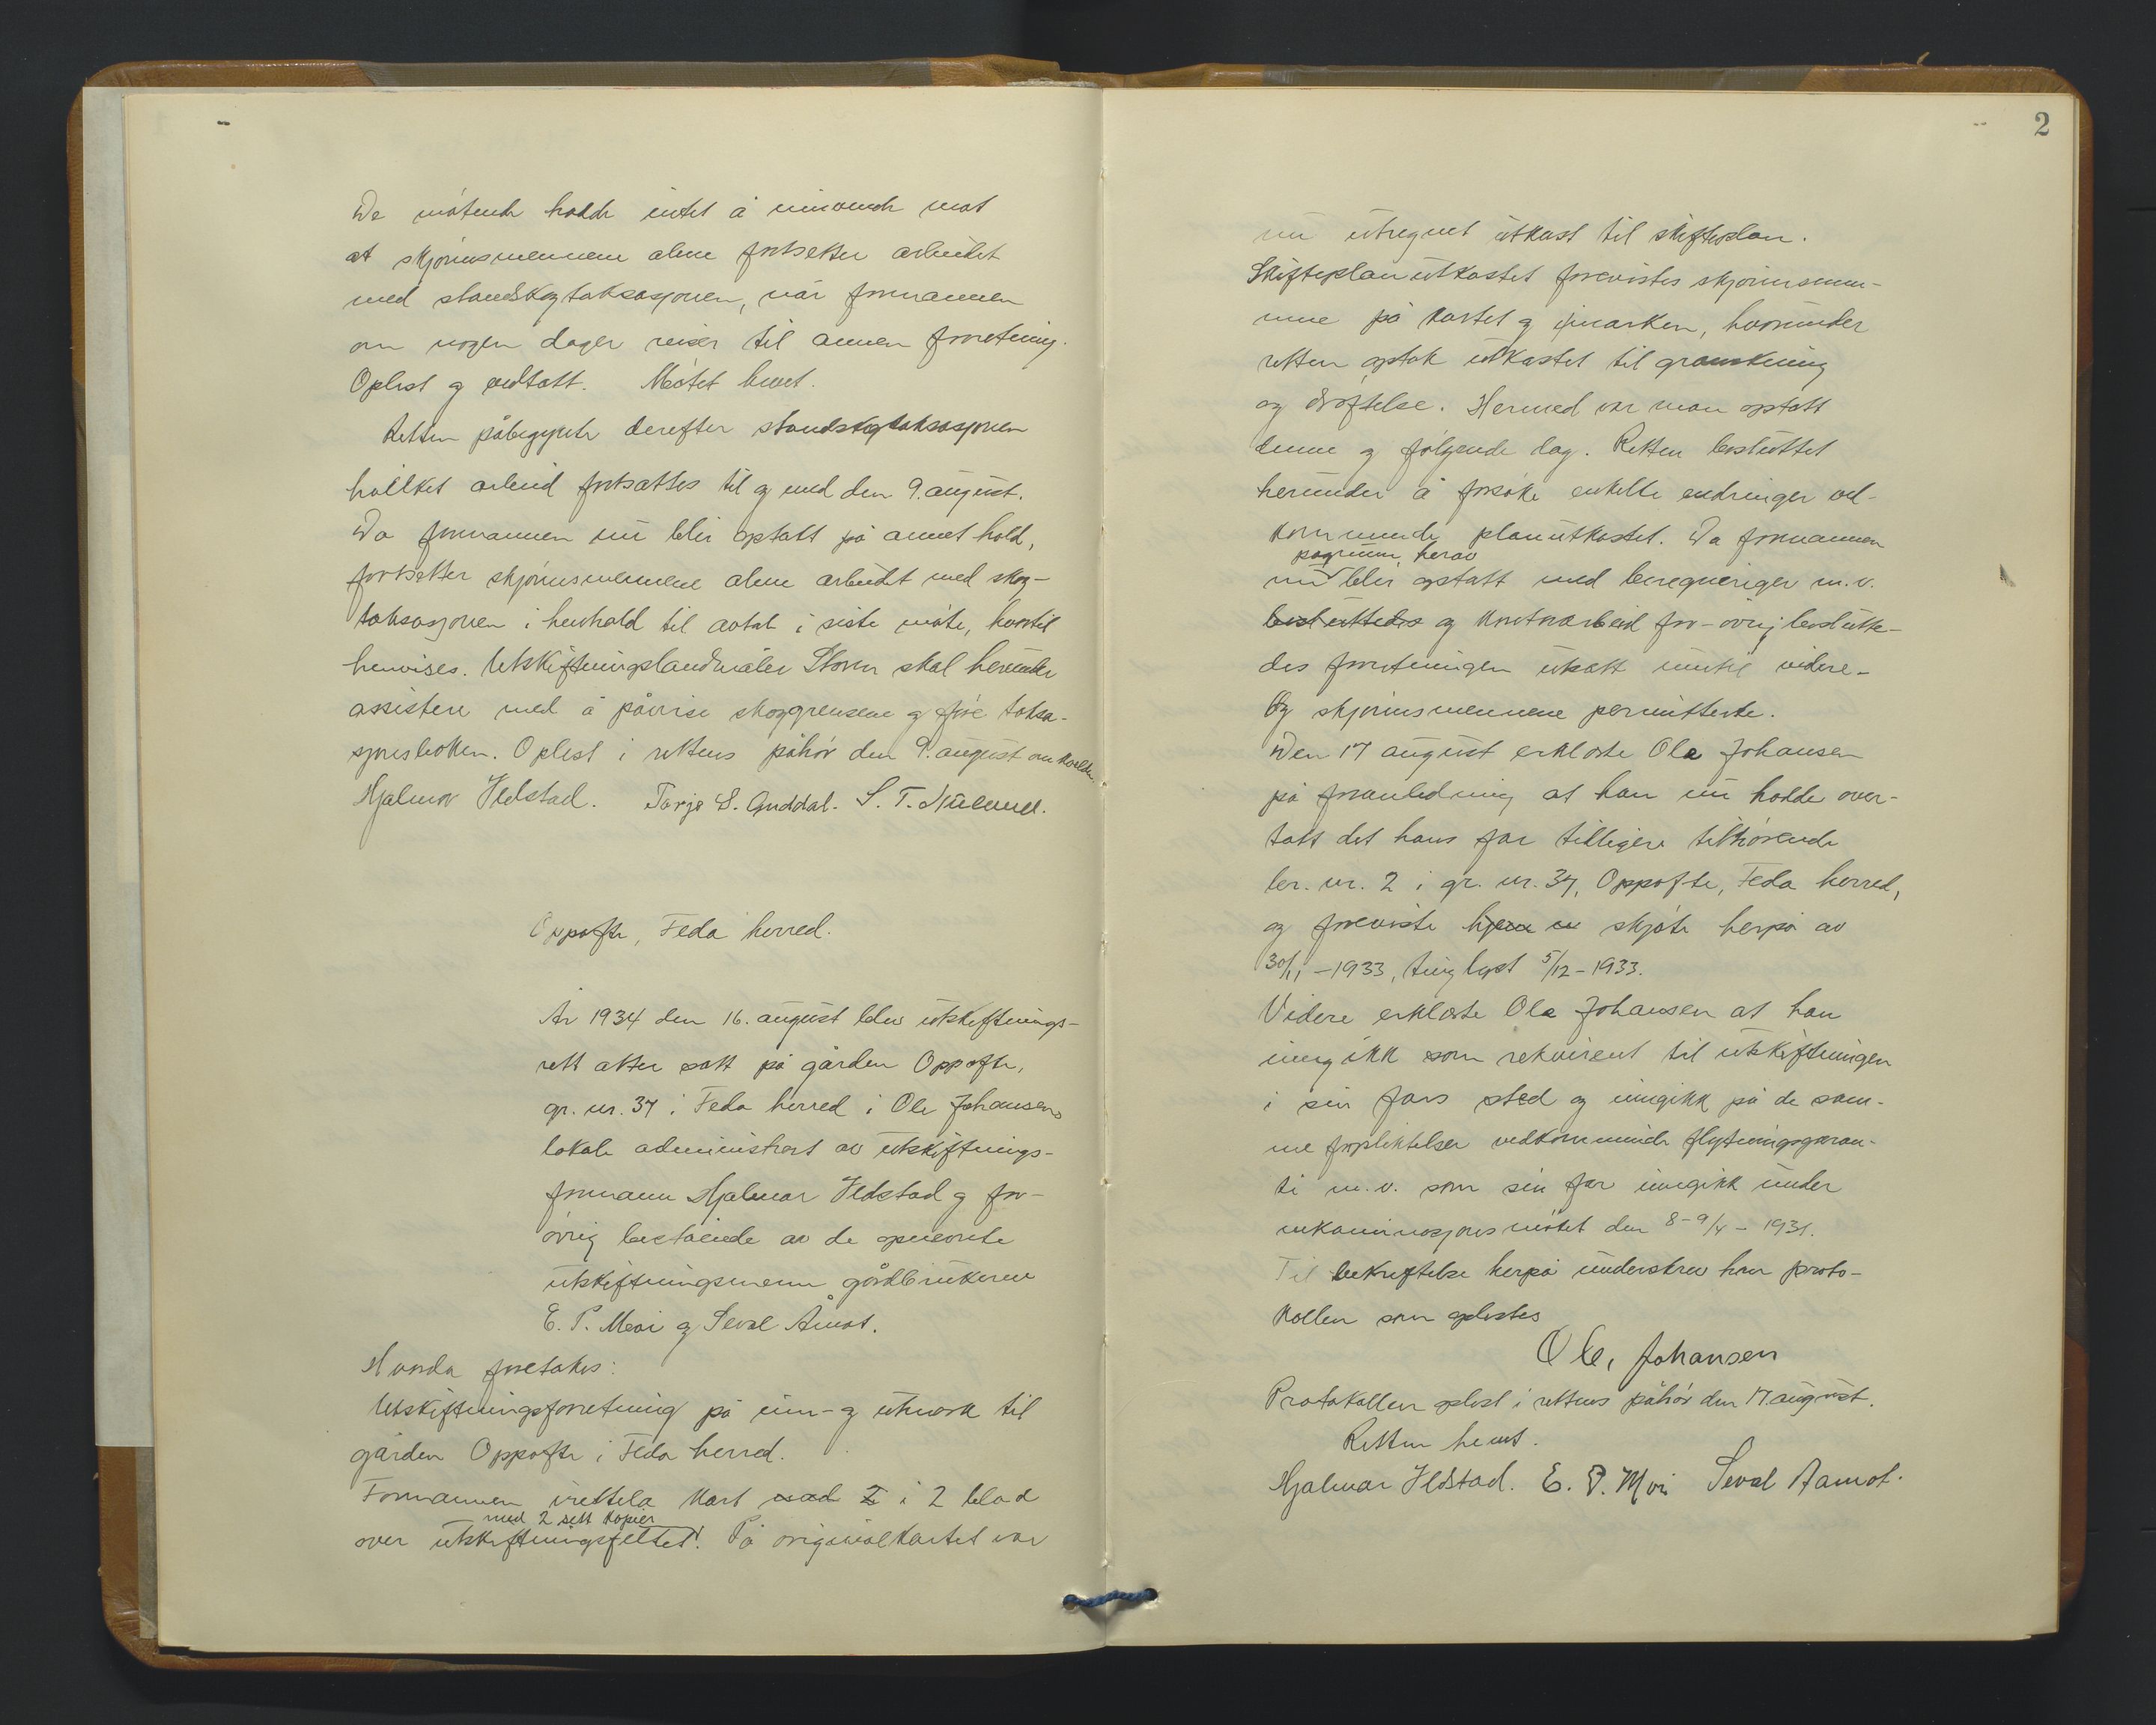 De møtende hadde intet å innvende mot
at skjønnsmennene alene fortsetter arbeidet
med standskogtaksasjonen, når formannen
om nogen dager reiser til annen forretning.
Oplest og vedtatt. Møtet hevet.
Retten påbegynte derefter standskogtaksasjonen
hvilket arbeid fortsattes til og med den 9. august.
Da formannen nu blir optatt på annet hold,
fortsetter skjønnsmennene alene arbeidet med skog-
taksasjonen i henhold til avtale i siste møte, hvortil
henvises. Utskiftningslandmåler Storm skal herunder
assistere med å påvise skoggrensene og føre taksa-
sjonsboken. Oplest i rettens påhør den 9. august om kvelden.
Hjalmar Ildstad. Tarje S. Guddal. S. T.
Oppofte, Feda herred.
År 1934 den 16. august blev utskiftnings-
rett atter satt på gården Oppofte,
gr. nr. 37 i Feda herred i Ole Johansens
lokale administrert av utskiftnings-
formann Hjalmar Ildstad og for-
øvrig bestående av de opnevnte
utskiftningsmenn gårdbrukerne
E. P. Moi og Seval Åmot.
Hvorda foretokes:
Utskiftningsforretning på inn- og utmark til
gården Oppofte i Feda herred.
Formannen irettela kart i 2 blad
med 2 sett kopier
over utskiftningsfeltet. På originalkartet var
2
nu utregnet utkast til skifteplan.
Skifteplanutkastet forevistes skjønnsmen-
nene på kartet og i marken, hvorunder
retten optok utkastet til granskning
og drøftelse. Hermed var man optatt
denne og følgende dag. Retten besluttet
herunder å forsøke enkelte endringer ved-
kommende planutkastet. Da formannen
på grunn herav
nu blir optatt med beregneringer m.v.
besluttedes og kontorarbeid for-øvrig beslutte-
des forretningen utsatt inntil videre.
Og skjønnsmennene permitterte.
Den 17 august erklærte Ole Johansen
på foranledning at han nu hadde over-
tatt det hans far tidligere tilhørende
br. nr. 2 i gr. nr. 37, Oppofte, Feda herred,
og foreviste skjøte herpå av
30/11 - 1933, tinglyst 5/12 - 1933.
Videre erklærte Ole Johansen at han
inngikk som rekvirent til utskiftningen
i sin fars sted og inngikk på de sam-
me forpliktelser vedkommende flytningsgaran-
ti m.v. som sin far inngikk under
rekognosjonsmøtet den 8-9/4 - 1931.
Til bekreftelse herpå underskrev han proto-
kollen som oplestes
Ole, Johansen
Protokollen oplest i rettens påhør den 17. august.
Retten hevet.
Hjalmar Ildstad. E. P. Moi Seval Aamot.